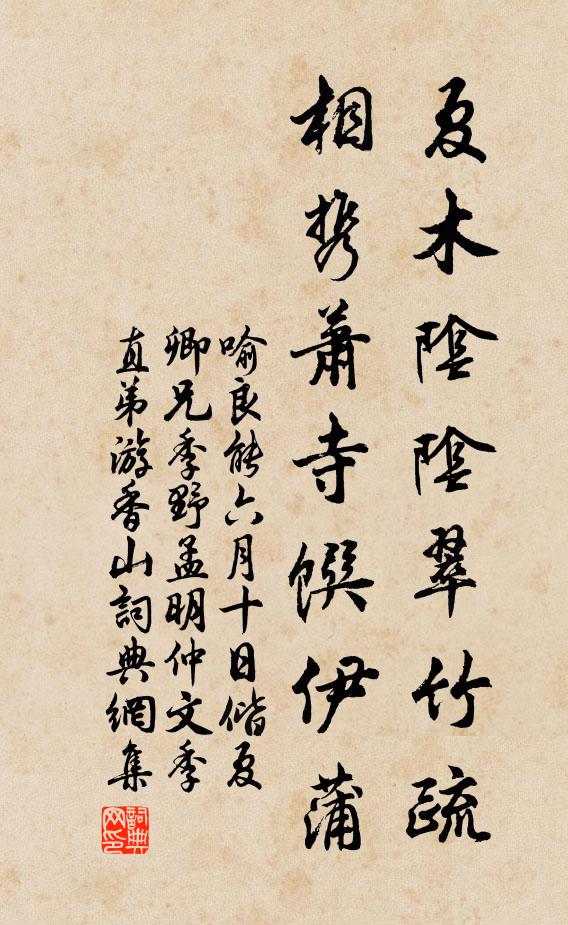 夏木陰陰翠竹疏
相携蕭寺饌伊蒲
喻良能六月十日偕夏
卿兄季野孟明仲文季
直弟游香山詞典網集
詞典網印